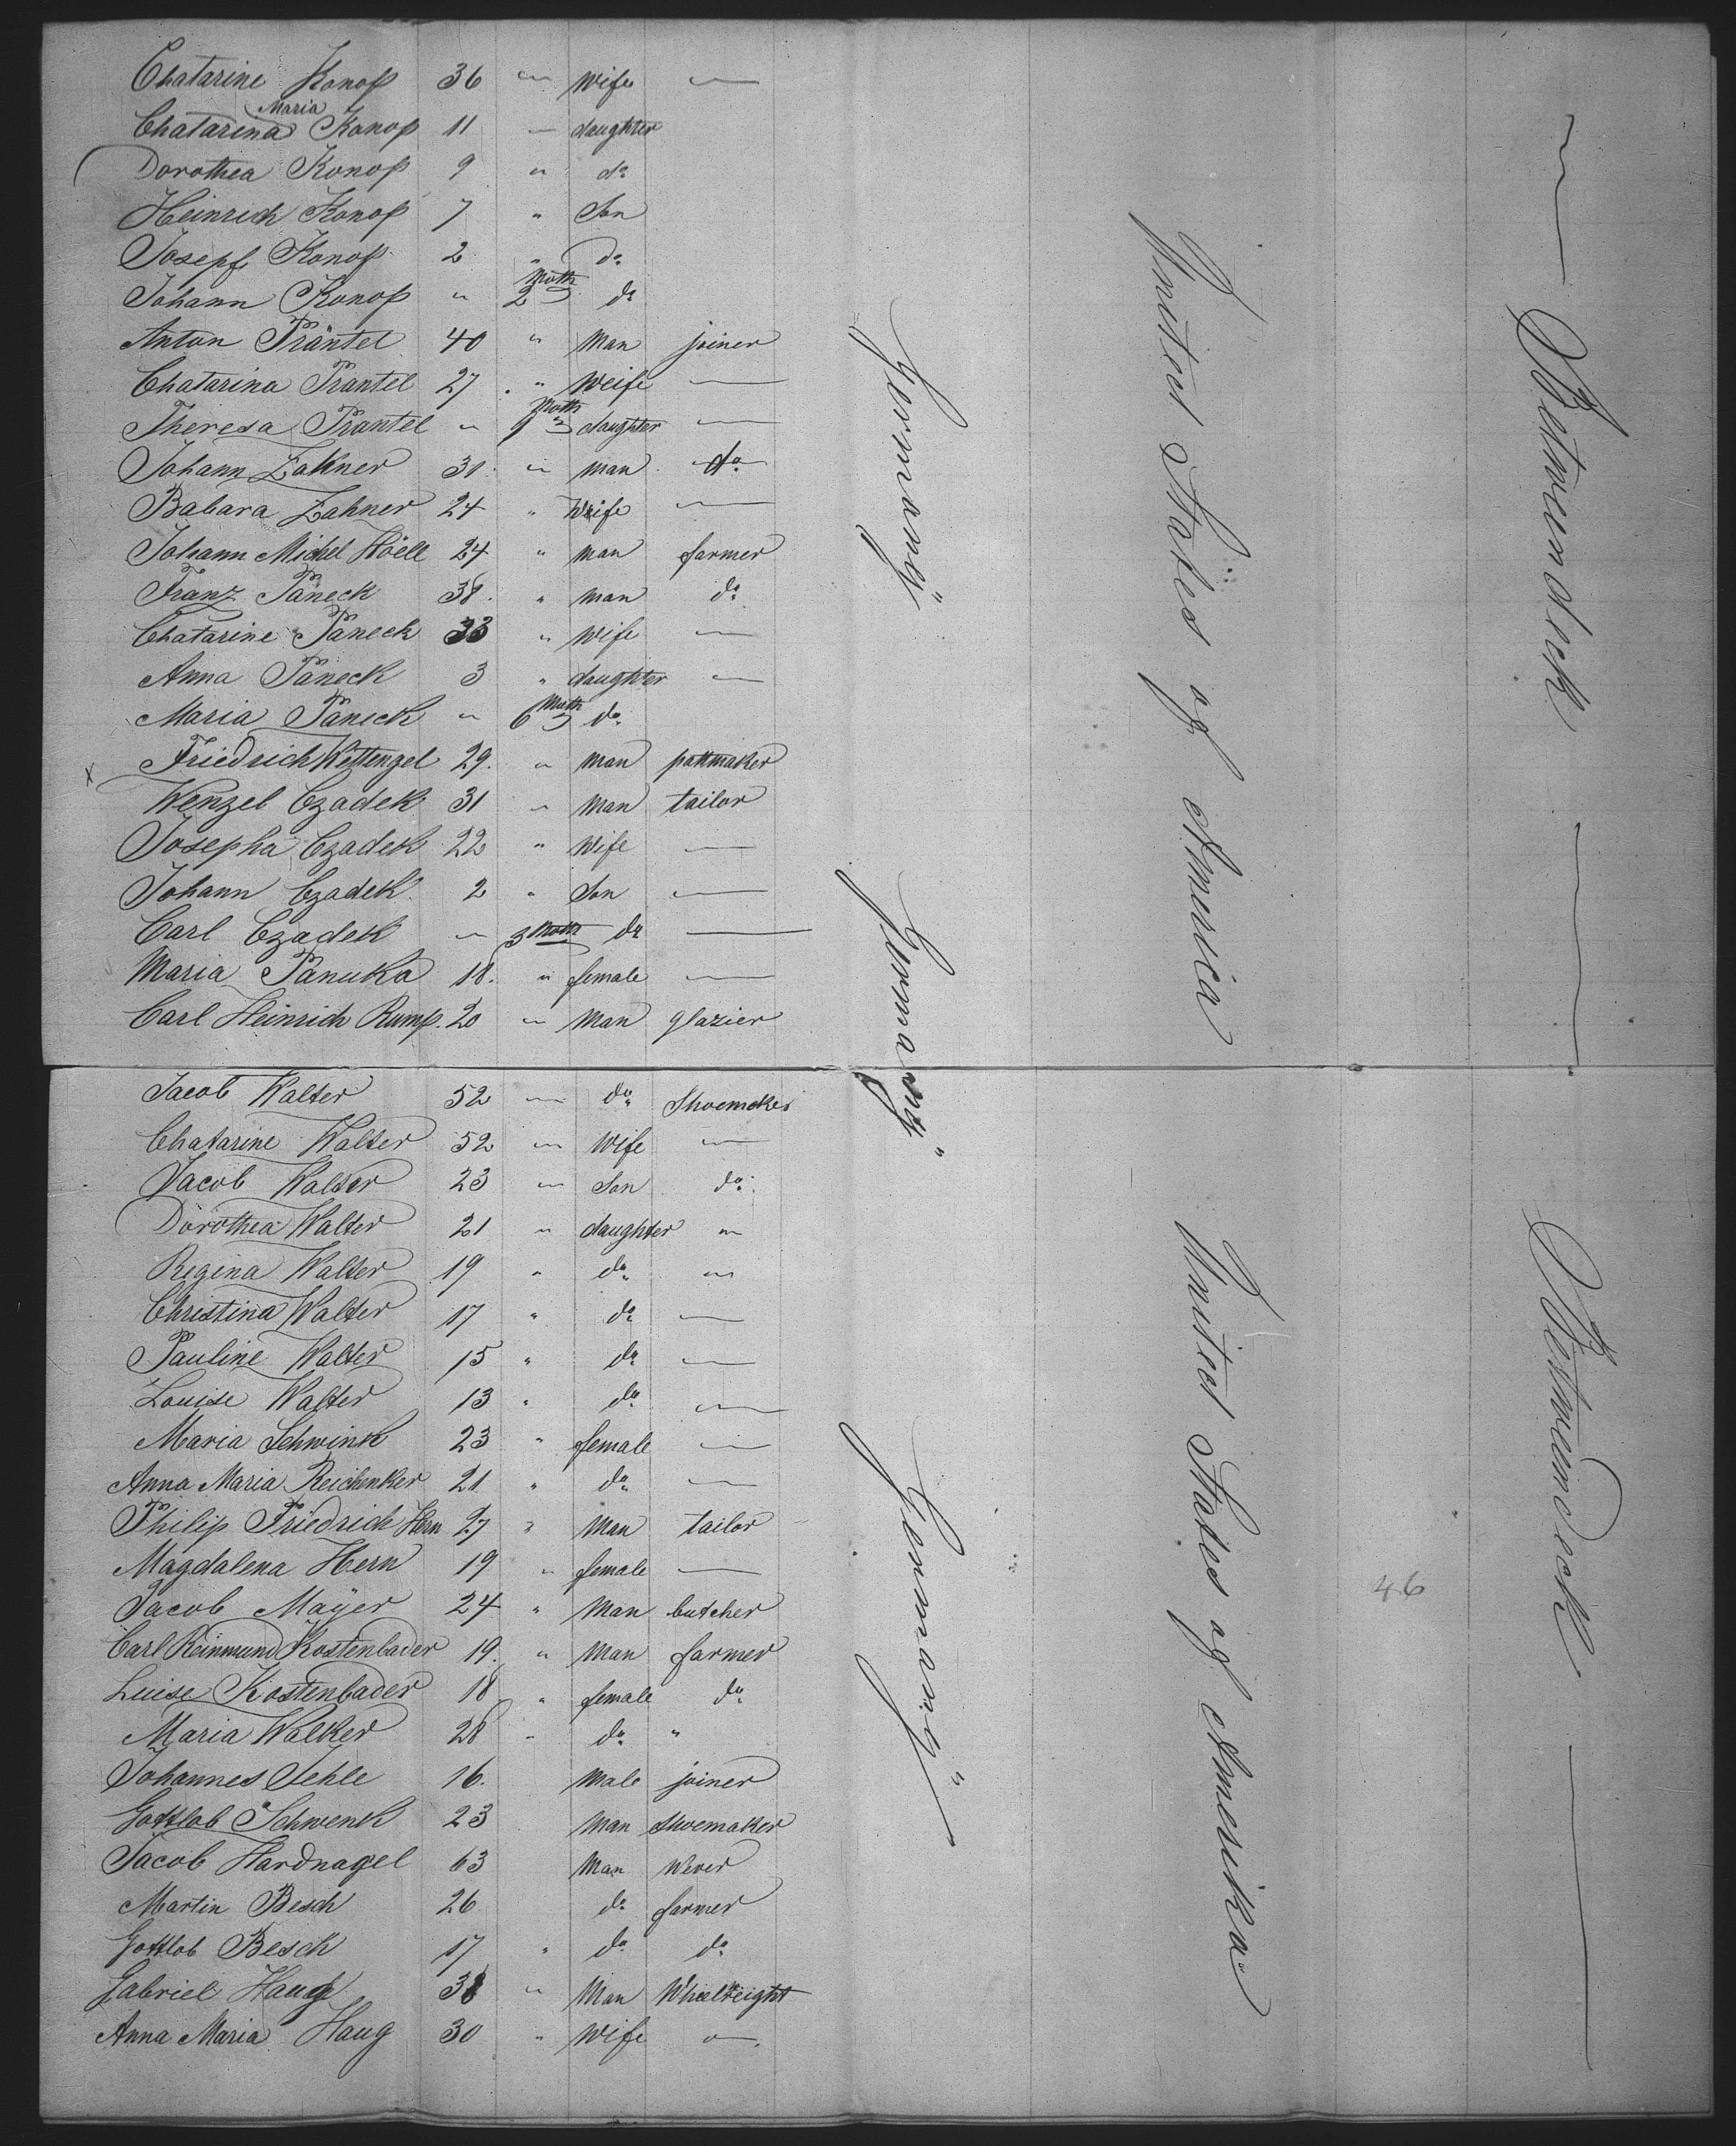 Chatarine Konop 36 " wife —
Chatarina Maria Konop 11 — daughter
Dorothea Konop 9 " do
Heinrich Konop 7 " Son
Josepf Konop 2 " do
Johann Konop " 2 Moth do
Anton Präntel 40 " Man joiner
Chatarina Prantel 27 " Weife —
Theresa Prantel " 9 Moth daughter —
Johann Zahner 31 " man do
Babara Zahner 24 " Wife —
Johann Michel Höell 24 " man farmer
Franz Päneck 38 " man do
Chatarine Päneck 33 " Wife —
Anna Päneck 3 " daughter —
Maria Päneck " 6 Moth do
x Friedrich Wettengel 29 " man pottmaker
Wenzel Czadek 31 " Man tailor
Josepha Czadek 22 " Wife —
Johann Czadek 2 " Son —
Carl Czadek " 3 Moth do —
Maria Panuka 18 " female —
Carl Heinrich Rump 20 " Man glazier
Jacob Walter 52 " do Shoemaker
Chatarine Walter 52 " Wife —
Jacob Walter 23 " Son do
Dorothea Walter 21 " daughter "
Regina Walter 19 " do "
Christina Walter 17 " do —
Pauline Walter 15 " do —
Louise Walter 13 " do —
Maria Schwink 23 " female —
Anna Maria Reichenker 21 " do —
Philip Friedrich Hern 27 " Man tailor
Magdalena Hern 19 " female —
Jacob Mayer 24 " Man butcher
Carl Reinmund Kostenbader 19 " Man farmer
Luise Kostenbader 18 " female do
Maria Walker 28 " do "
Johannes Sehle 16 Male joiner
Gottlob Schwenk 23 Man Shoemaker
Jacob Hardnagel 63 Man Wever
Martin Besch 26 do farmer
Gottlob Besch 17 " do do
Gabriel Haug 38 " Man Wheelreight
Anna Maria Haug 30 " Wife —
Germany
Germany
Germany
United States of America
United States of Amerika
46
— Betweendeck —
Betweendeck —